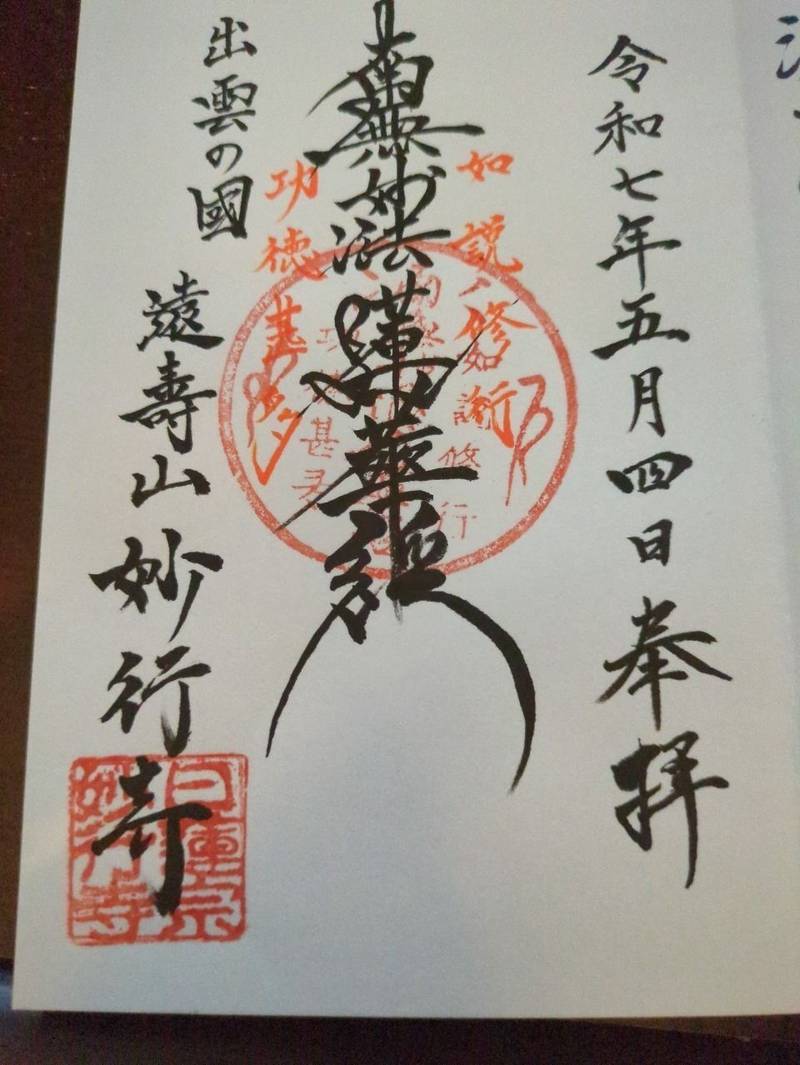 令和七年五月四日奉拝
如説修行
南無妙法蓮華経
功徳甚多
出雲の國
遠壽山妙行寺
日蓮宗
妙行寺